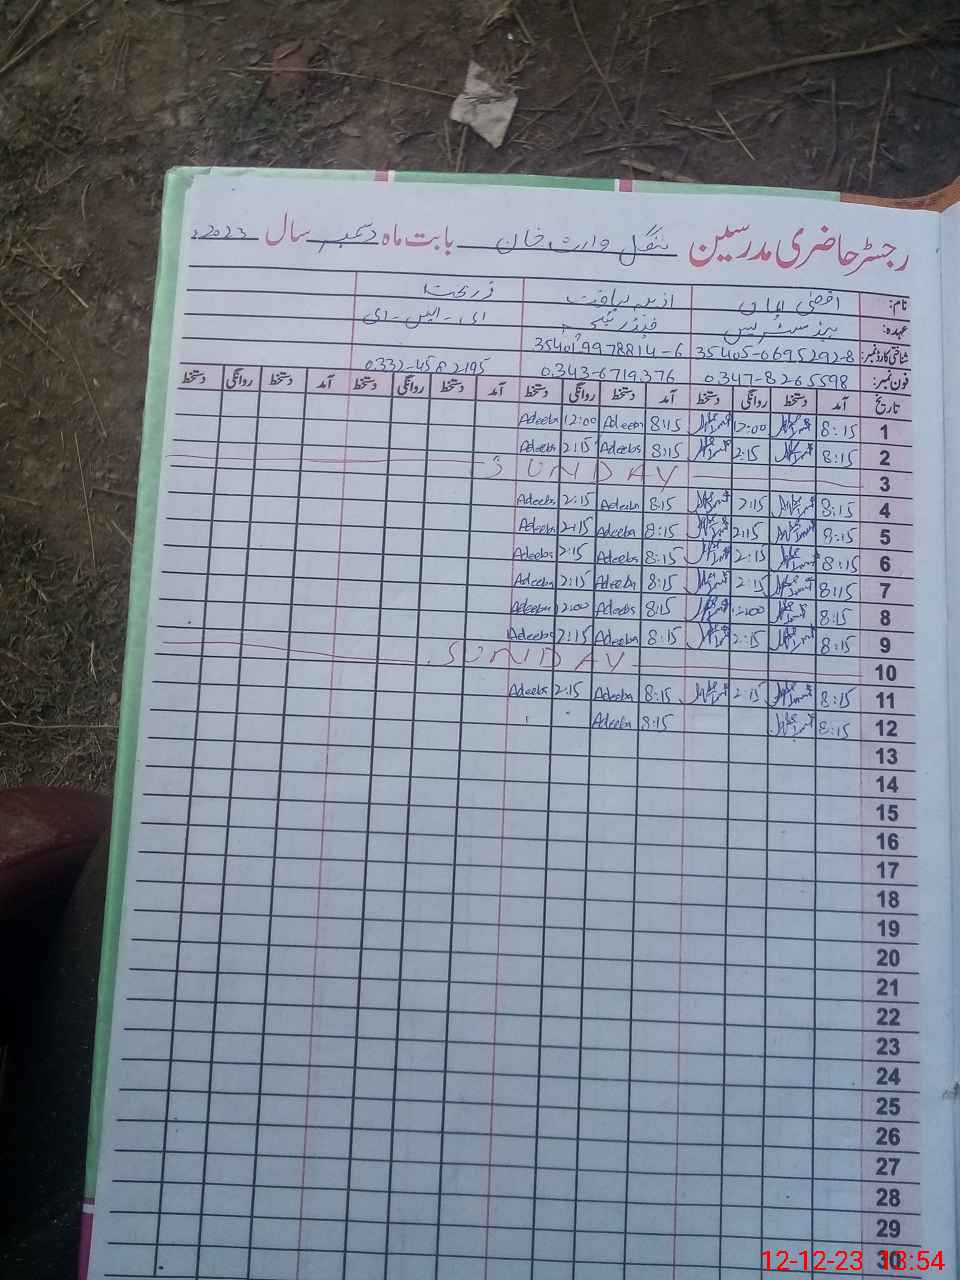 رجسٹر حاضری مدرسین ننگل وارث خان بابت ماہ دسمبر سال 2023ء
نام: اقصیٰ ایمان ادیبہ لیاقت فرحت
عہدہ: ہیڈ مسٹریس ای۔ ایس۔ ای
شناختی کارڈ نمبر: 35405-0695292-8 6-9978814
فون نمبر: 0347-8265598 0343-6719376 0332-4582195
تاریخ آمد دستخط روانگی دستخط آمد دستخط روانگی دستخط آمد دستخط روانگی دستخط آمد دستخط روانگی دستخط
1 8:15 12:00 8:15 Adeeba 12:00 Adeeba
2 8:15 2:15 8:15 Adeeba 2:15 Adeeba
3 SUNDAY
4 8:15 2:15 8:15 Adeeba 2:15 Adeeba
5 8:15 2:15 8:15 Adeeba 2:15 Adeeba
6 8:15 2:15 8:15 Adeeba 2:15 Adeeba
7 8:15 2:15 8:15 Adeeba 2:15 Adeeba
8 8:15 12:00 8:15 Adeeba 12:00 Adeeba
9 8:15 2:15 8:15 Adeeba 2:15 Adeeba
10 SUNDAY
11 8:15 2:15 8:15 Adeeba 2:15 Adeeba
12 8:15 8:15 Adeeba
13
14
15
16
17
18
19
20
21
22
23
24
25
26
27
28
29
30
12-12-23 13:54